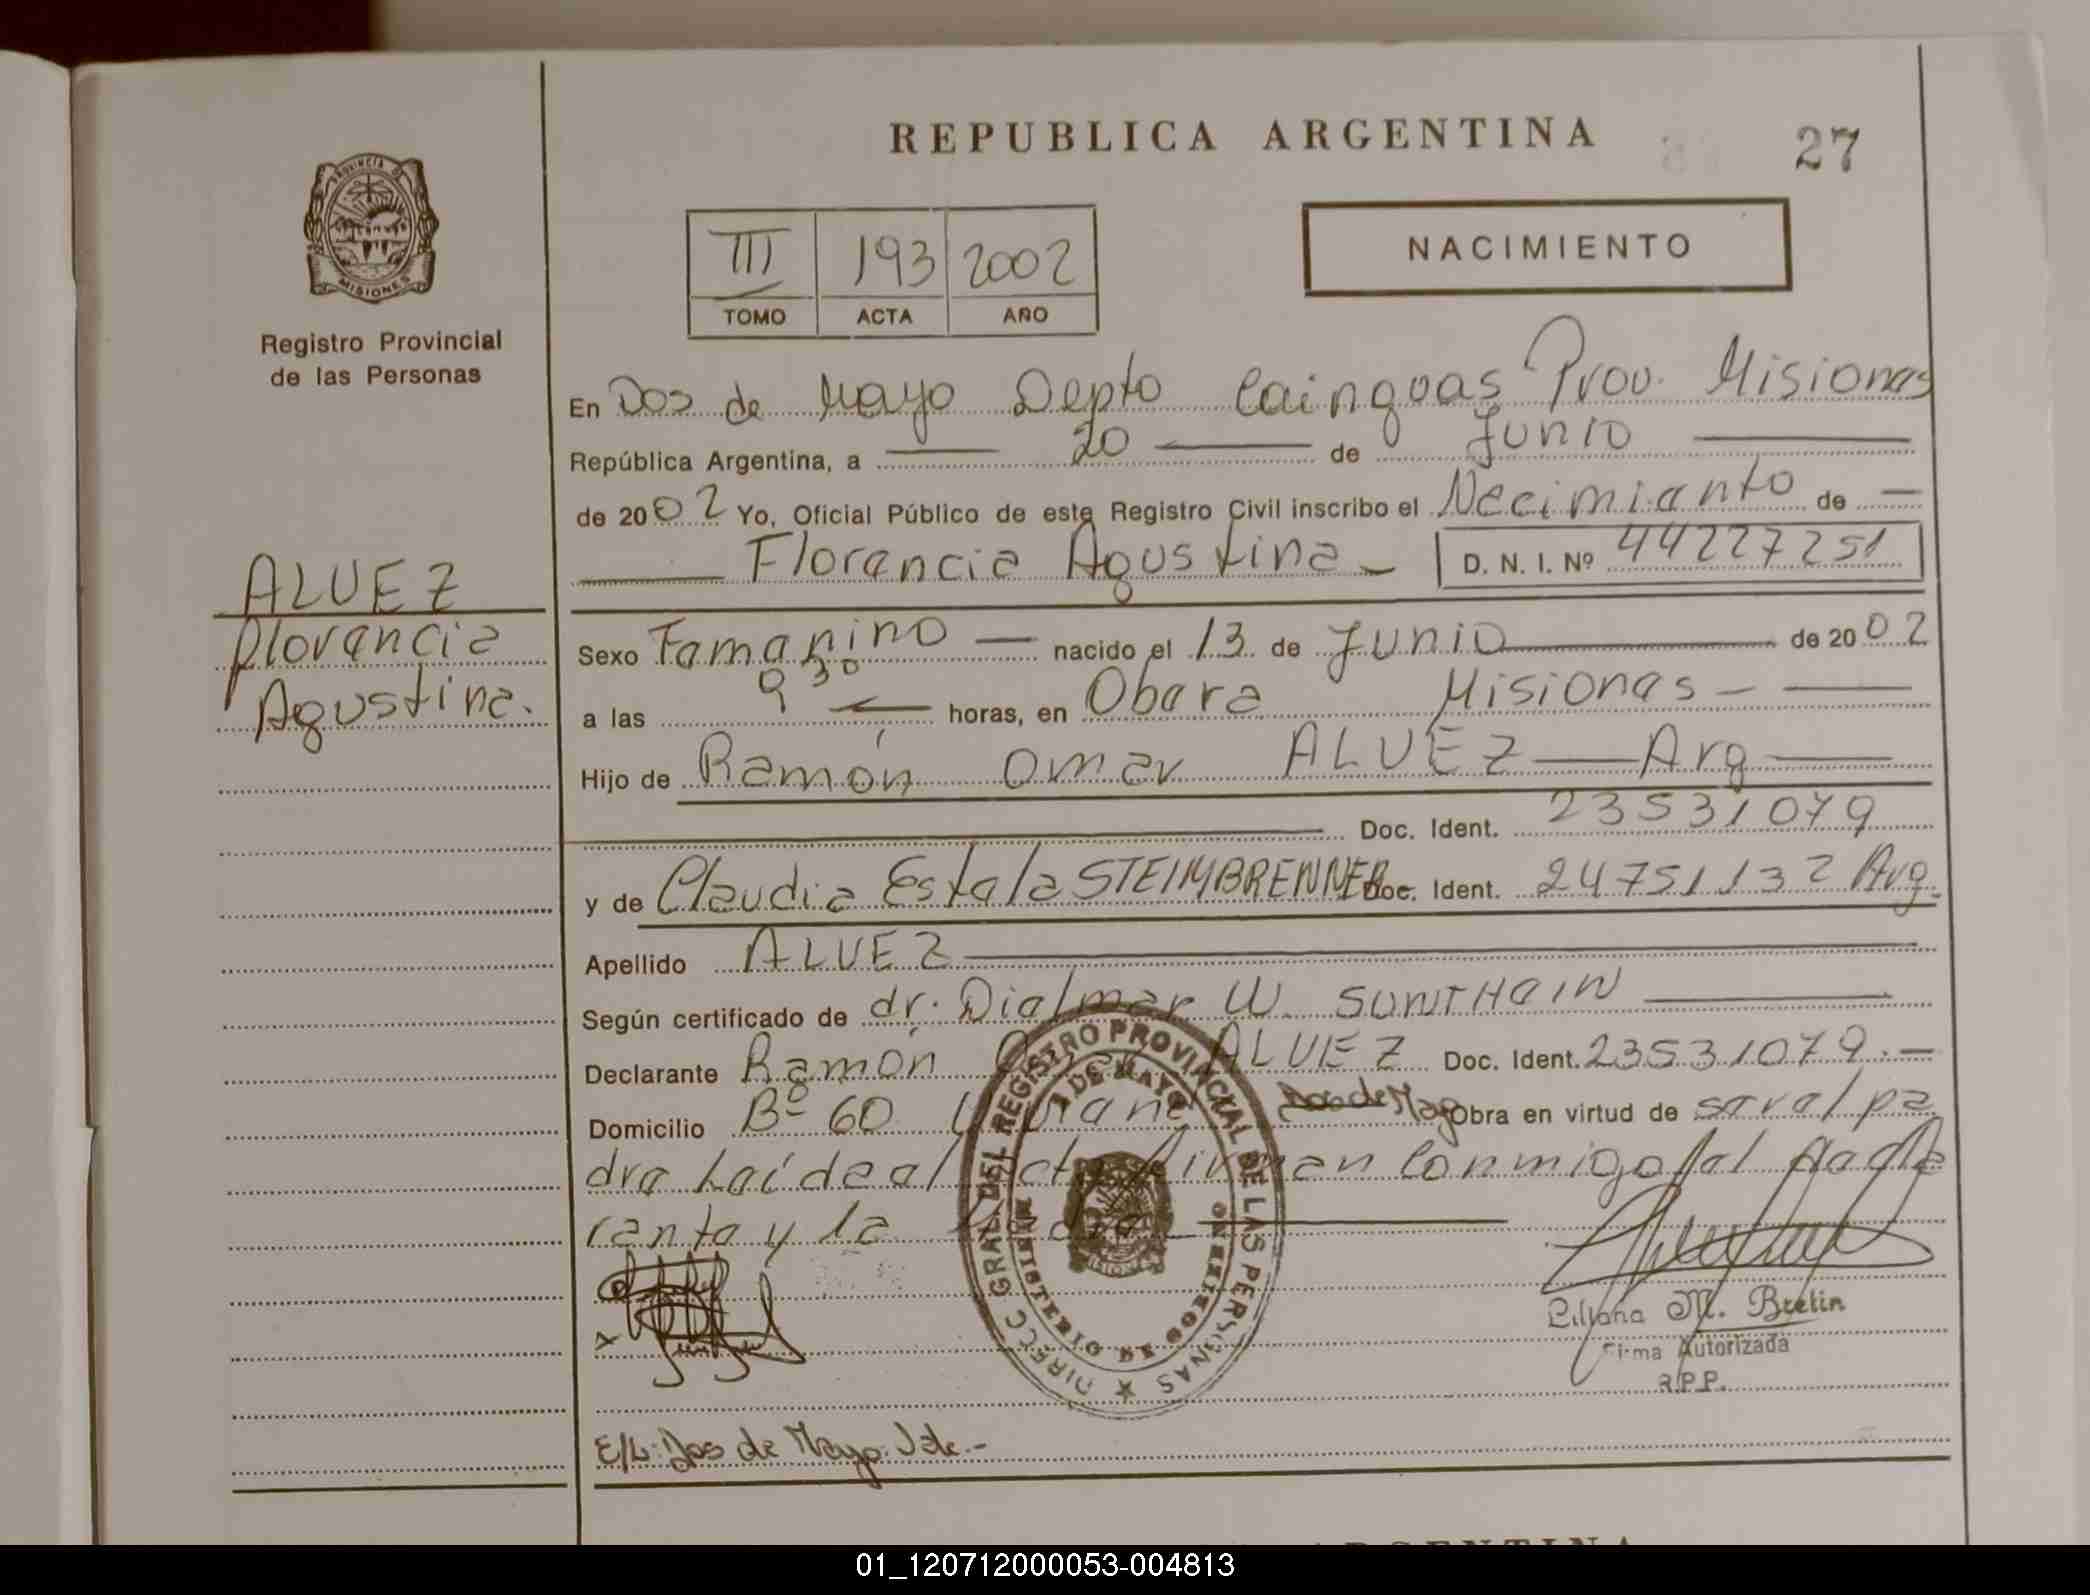 REPUBLICA ARGENTINA
27
PROVINCIA DE MISIONES
Registro Provincial
de las Personas
III 193 2002
TOMO ACTA AÑO
NACIMIENTO
En Dos de Mayo Depto Cainguas Prov. Misiones
República Argentina, a 20 de Junio
de 2002 Yo, Oficial Público de este Registro Civil inscribo el Necimianto de
Florencia Agustina D. N. I. Nº 44227251
ALVEZ
Florencia
Agustina.
Sexo Famanino nacido el 13 de Junio de 2002
a las 9 30 horas, en Obera Misiones
Hijo de Ramón Omar ALVEZ Arg
Doc. Ident. 23531079
y de Claudia Estela STEIMBRENNER Doc. Ident. 24751132 Arg.
Apellido ALVEZ
Según certificado de dr. Dialmar W. SUNTHAIN
Declarante Ramón ALVEZ Doc. Ident. 23531079.
Domicilio Bº 60 Dos de Mayo Obra en virtud de ser el pa
dre Leída el firman conmigo el
rante y la
DIRECC GRAL DEL REGISTRO PROVINCIAL DE LAS PERSONAS
MINISTERIO DE GOBIERNO
2 DE MAYO
Liliana M. Bretin
Firma Autorizada
R.P.P.
E/L: Dos de Mayo. Vale.-
ARGENTINA
01_120712000053-004813